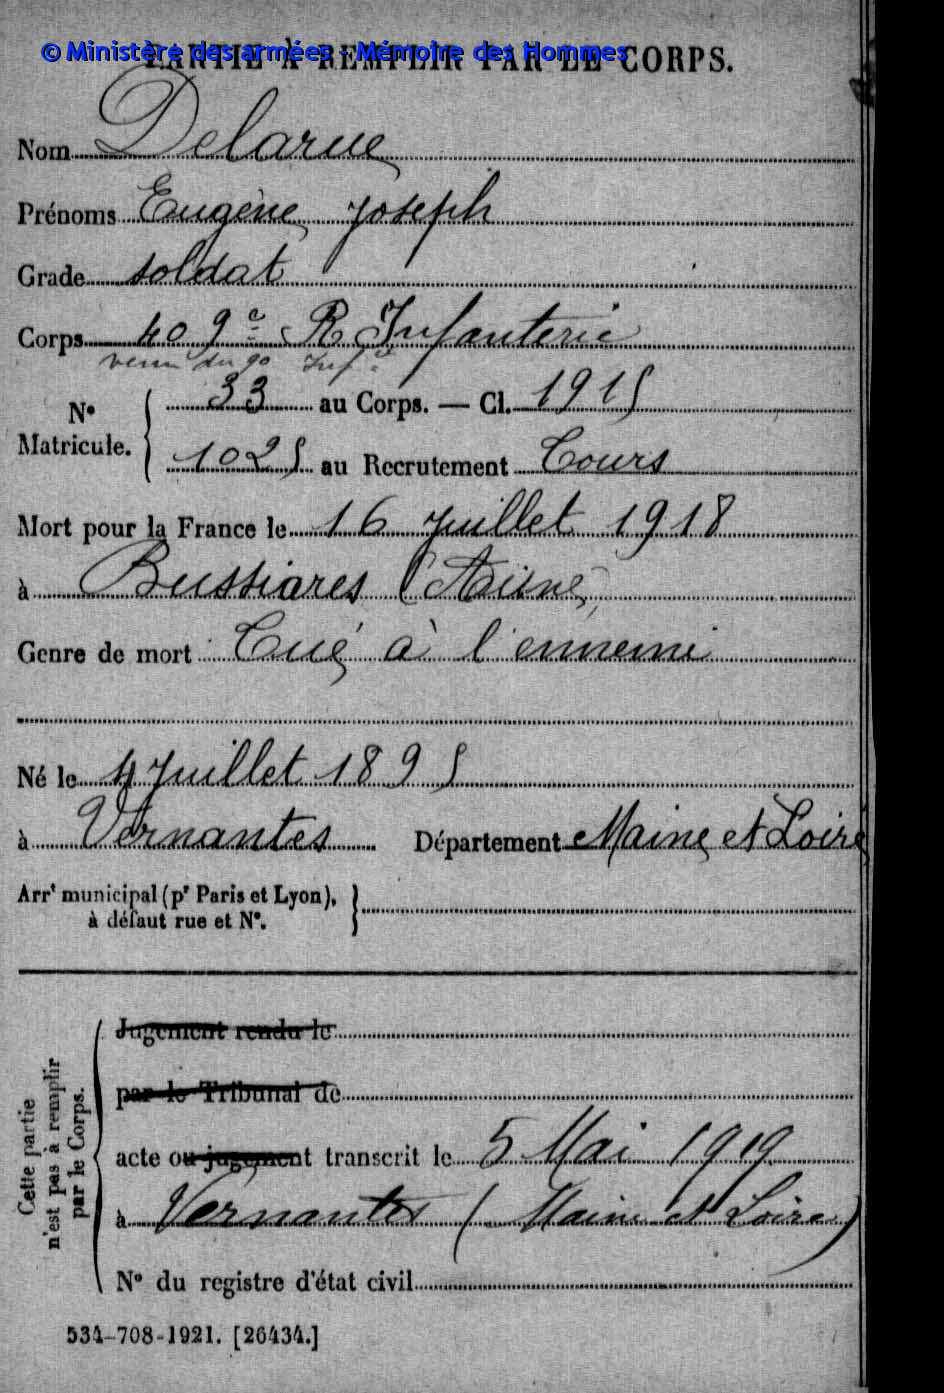 © Ministère des armées - Mémoire des Hommes
PARTIE À REMPLIR PAR LE CORPS.
Nom Delarue
Prénoms Eugène Joseph
Grade soldat
Corps 409e R Infanterie
venu du 90 Inf.ie
No Matricule. { 33 au Corps. — Cl. 1915
1025 au Recrutement Tours
Mort pour la France le 16 juillet 1918
à Bussiares (Aisne)
Genre de mort Tué à l'ennemi
Né le 4 Juillet 1895
à Vernantes Département Maine et Loire
Arrt municipal (pr Paris et Lyon),
à défaut rue et No. }
Cette partie
n'est pas à remplir
par le Corps.
Jugement rendu le
par le Tribunal de
acte ou jugement transcrit le 5 Mai 1919
à Vernantes (Maine et Loire)
No du registre d'état civil
534-708-1921. [26434.]